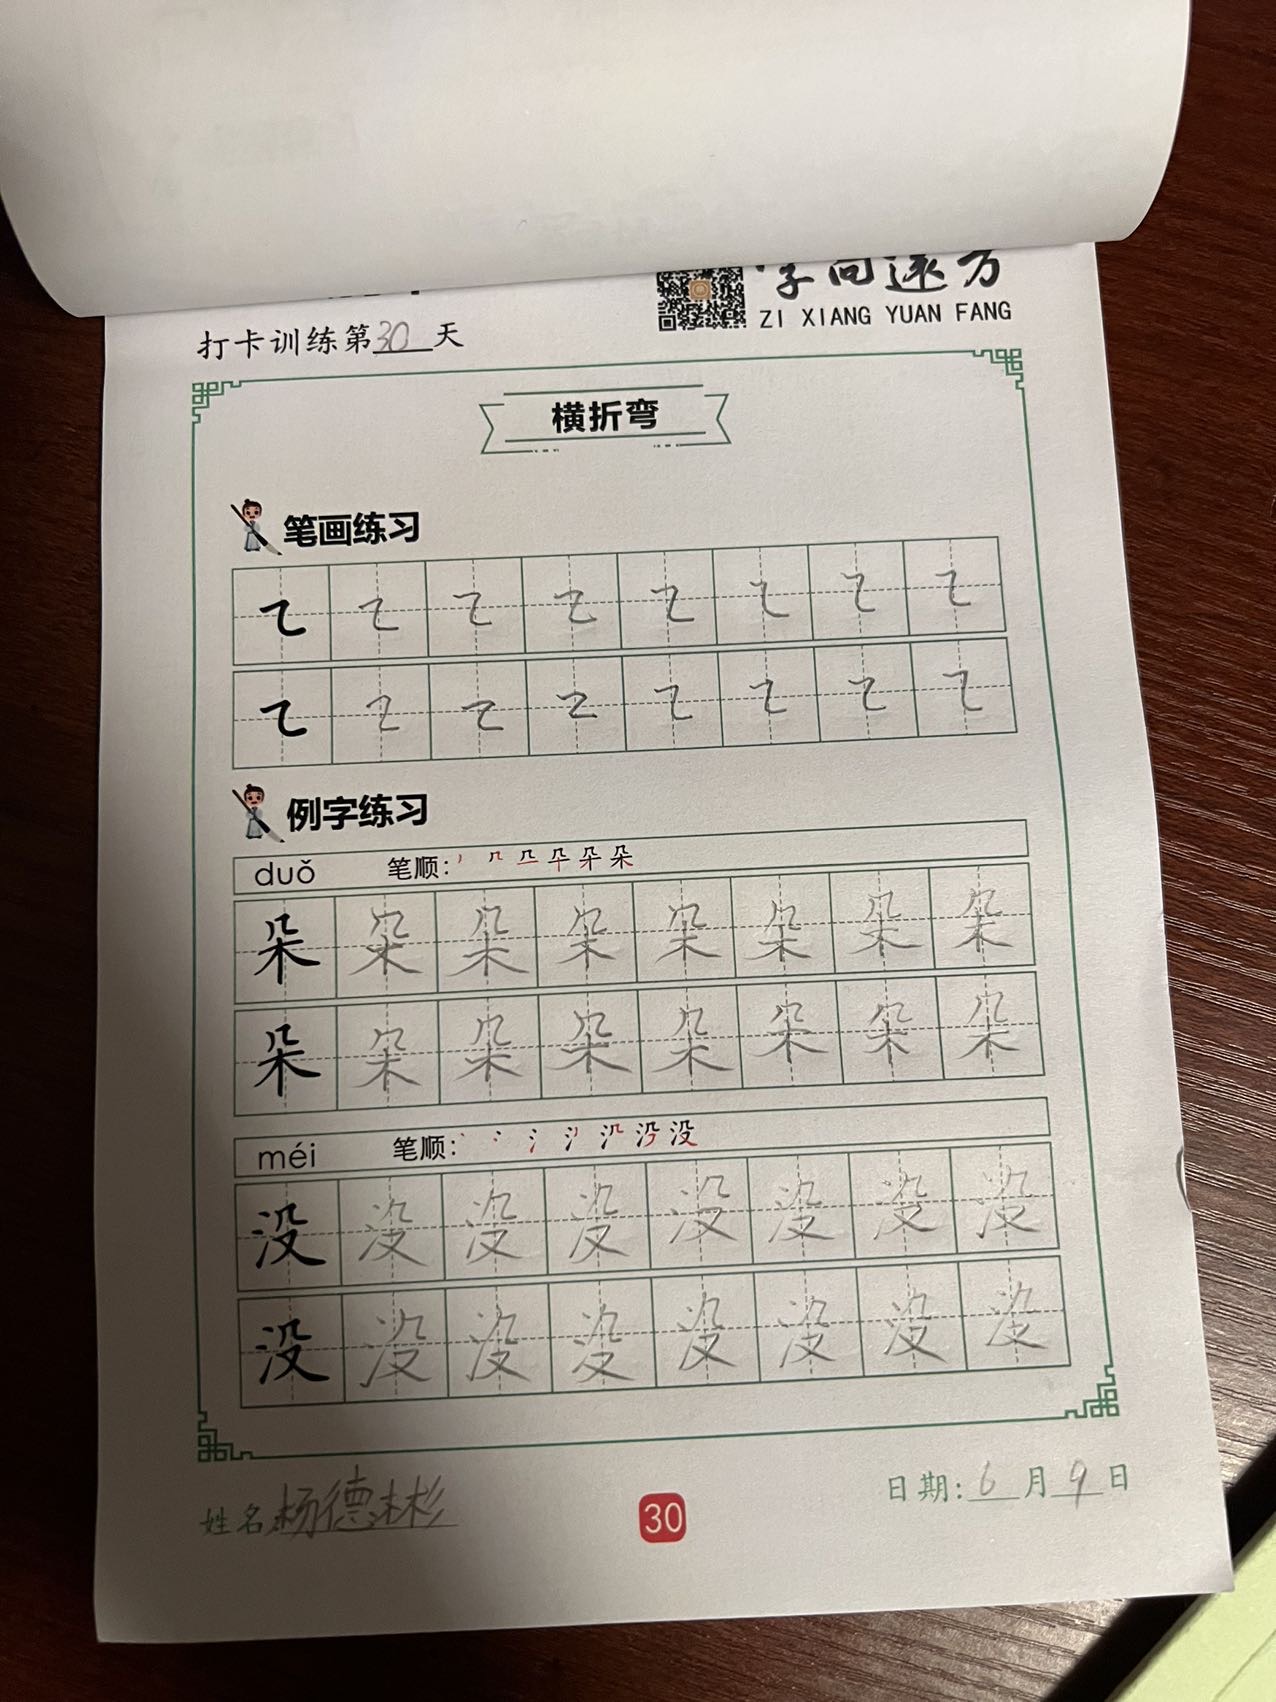 字向远方
ZI XIANG YUAN FANG
打卡训练第30天
横折弯
笔画练习
例字练习
duǒ 笔顺:
朵 朵 朵 朵 朵 朵 朵 朵
朵 朵 朵 朵 朵 朵 朵 朵
méi 笔顺:
没 没 没 没 没 没 没 没
没 没 没 没 没 没 没 没
姓名 杨德彬
30
日期: 6 月 9 日